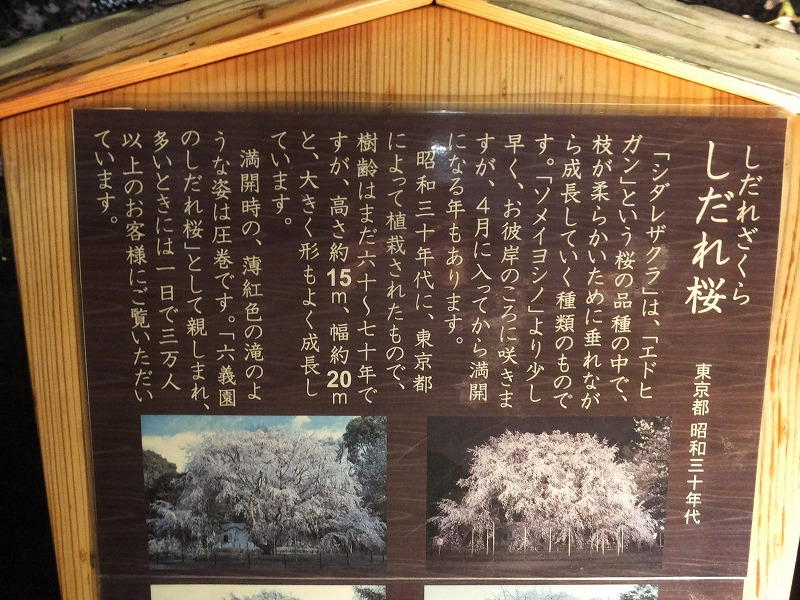 しだれざくら
しだれ桜
東京都 昭和三十年代
「シダレザクラ」は、「エドヒ
ガン」という桜の品種の中で、
枝が柔らかいために垂れなが
ら成長していく種類のもので
す。「ソメイヨシノ」より少し
早く、お彼岸のころに咲きま
すが、4月に入ってから満開
になる年もあります。
昭和三十年代に、東京都
によって植栽されたもので、
樹齢はまだ六十〜七十年で
すが、高さ約15m、幅約20m
と、大きく形もよく成長し
ています。
満開時の、薄紅色の滝のよ
うな姿は圧巻です。「六義園
のしだれ桜」として親しまれ、
多いときには一日で三万人
以上のお客様にご覧いただい
ています。